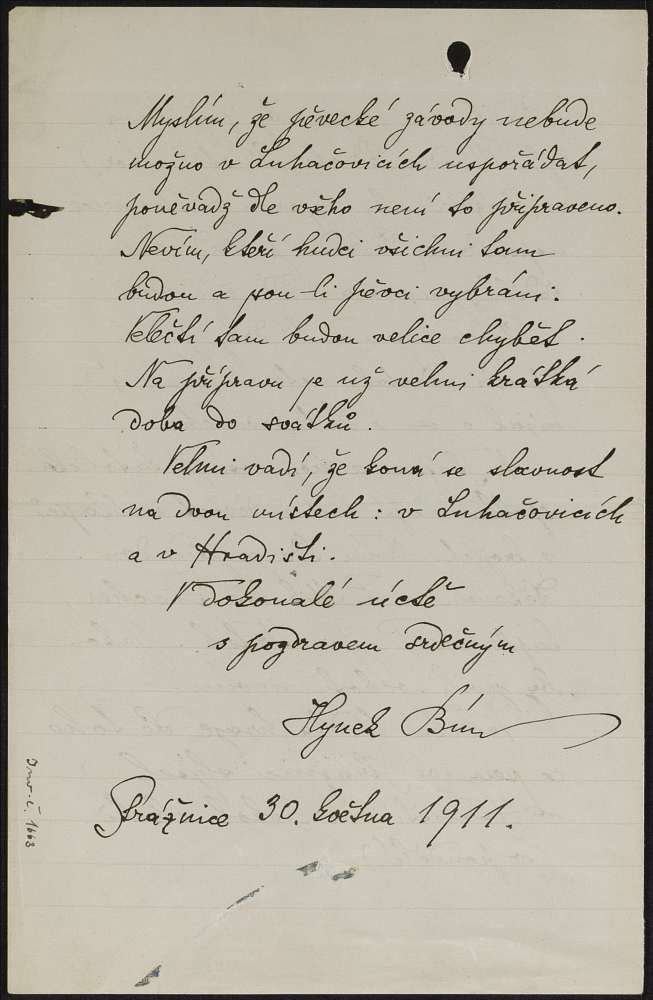 Myslím, že pěvecké závody nebude
možno v Luhačovicích uspořádat,
poněvadž dle všeho není to připraveno.
Nevím, kteří hudci všichni tam
budou a jsou-li pěvci vybráni.
Velečtí tam budou velice chybět.
Na přípravu je už velmi krátká
doba do svátků.
Velmi vadí, že koná se slavnost
na dvou místech: v Luhačovicích
a v Hradišti.
V dokonalé úctě
s pozdravem srdečným
Hynek Bím
Strážnice 30. května 1911.
Inv. č. 1663